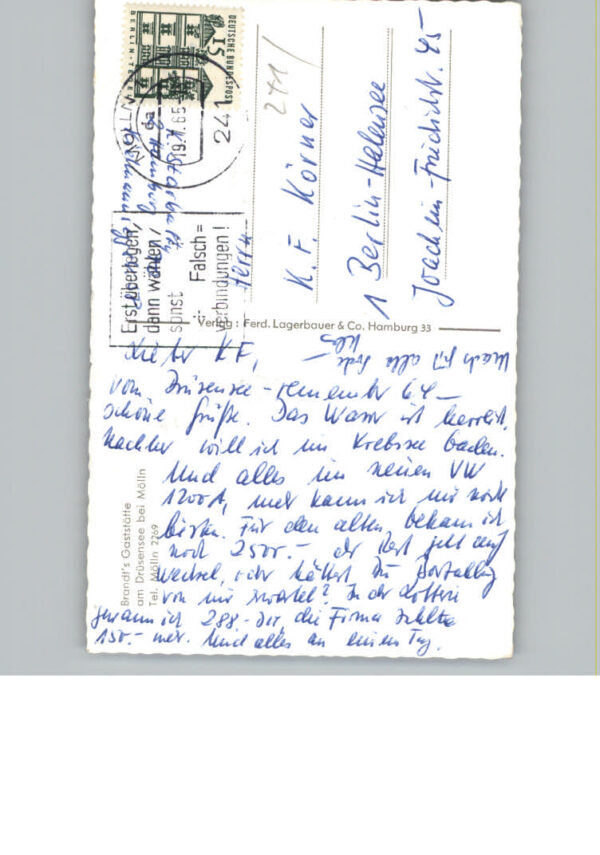 DEUTSCHE BUNDESPOST
15
BERLIN-TEGEL
241
19.7.65
Erst überlegen,
dann wählen /
sonst Falsch=
verbindungen!
241/
Herrn
K. F. Körner
1 Berlin-Halensee
Joachim-Friedrichstr. 45
Verlag: Ferd. Lagerbauer & Co. Hamburg 33
Brandt's Gaststätte
am Drüsensee bei Mölln
Tel. Mölln 2269
Lieber K.F.,
vom Drüsensee - remember 64 -
schöne Grüße. Das Wasser ist herrlich,
nachher will ich im Krebssee baden.
Und alles im neuen VW
1200A, mehr kann ich mir nicht
leisten. Für den alten bekam ich
noch 2500.- der Rest geht auf
Wechsel, oder hättest Du
von mir erwartet? In der Lotterie
gewann ich 288.- die Firma zahlte
150.- mehr. Und alles an einem Tag.